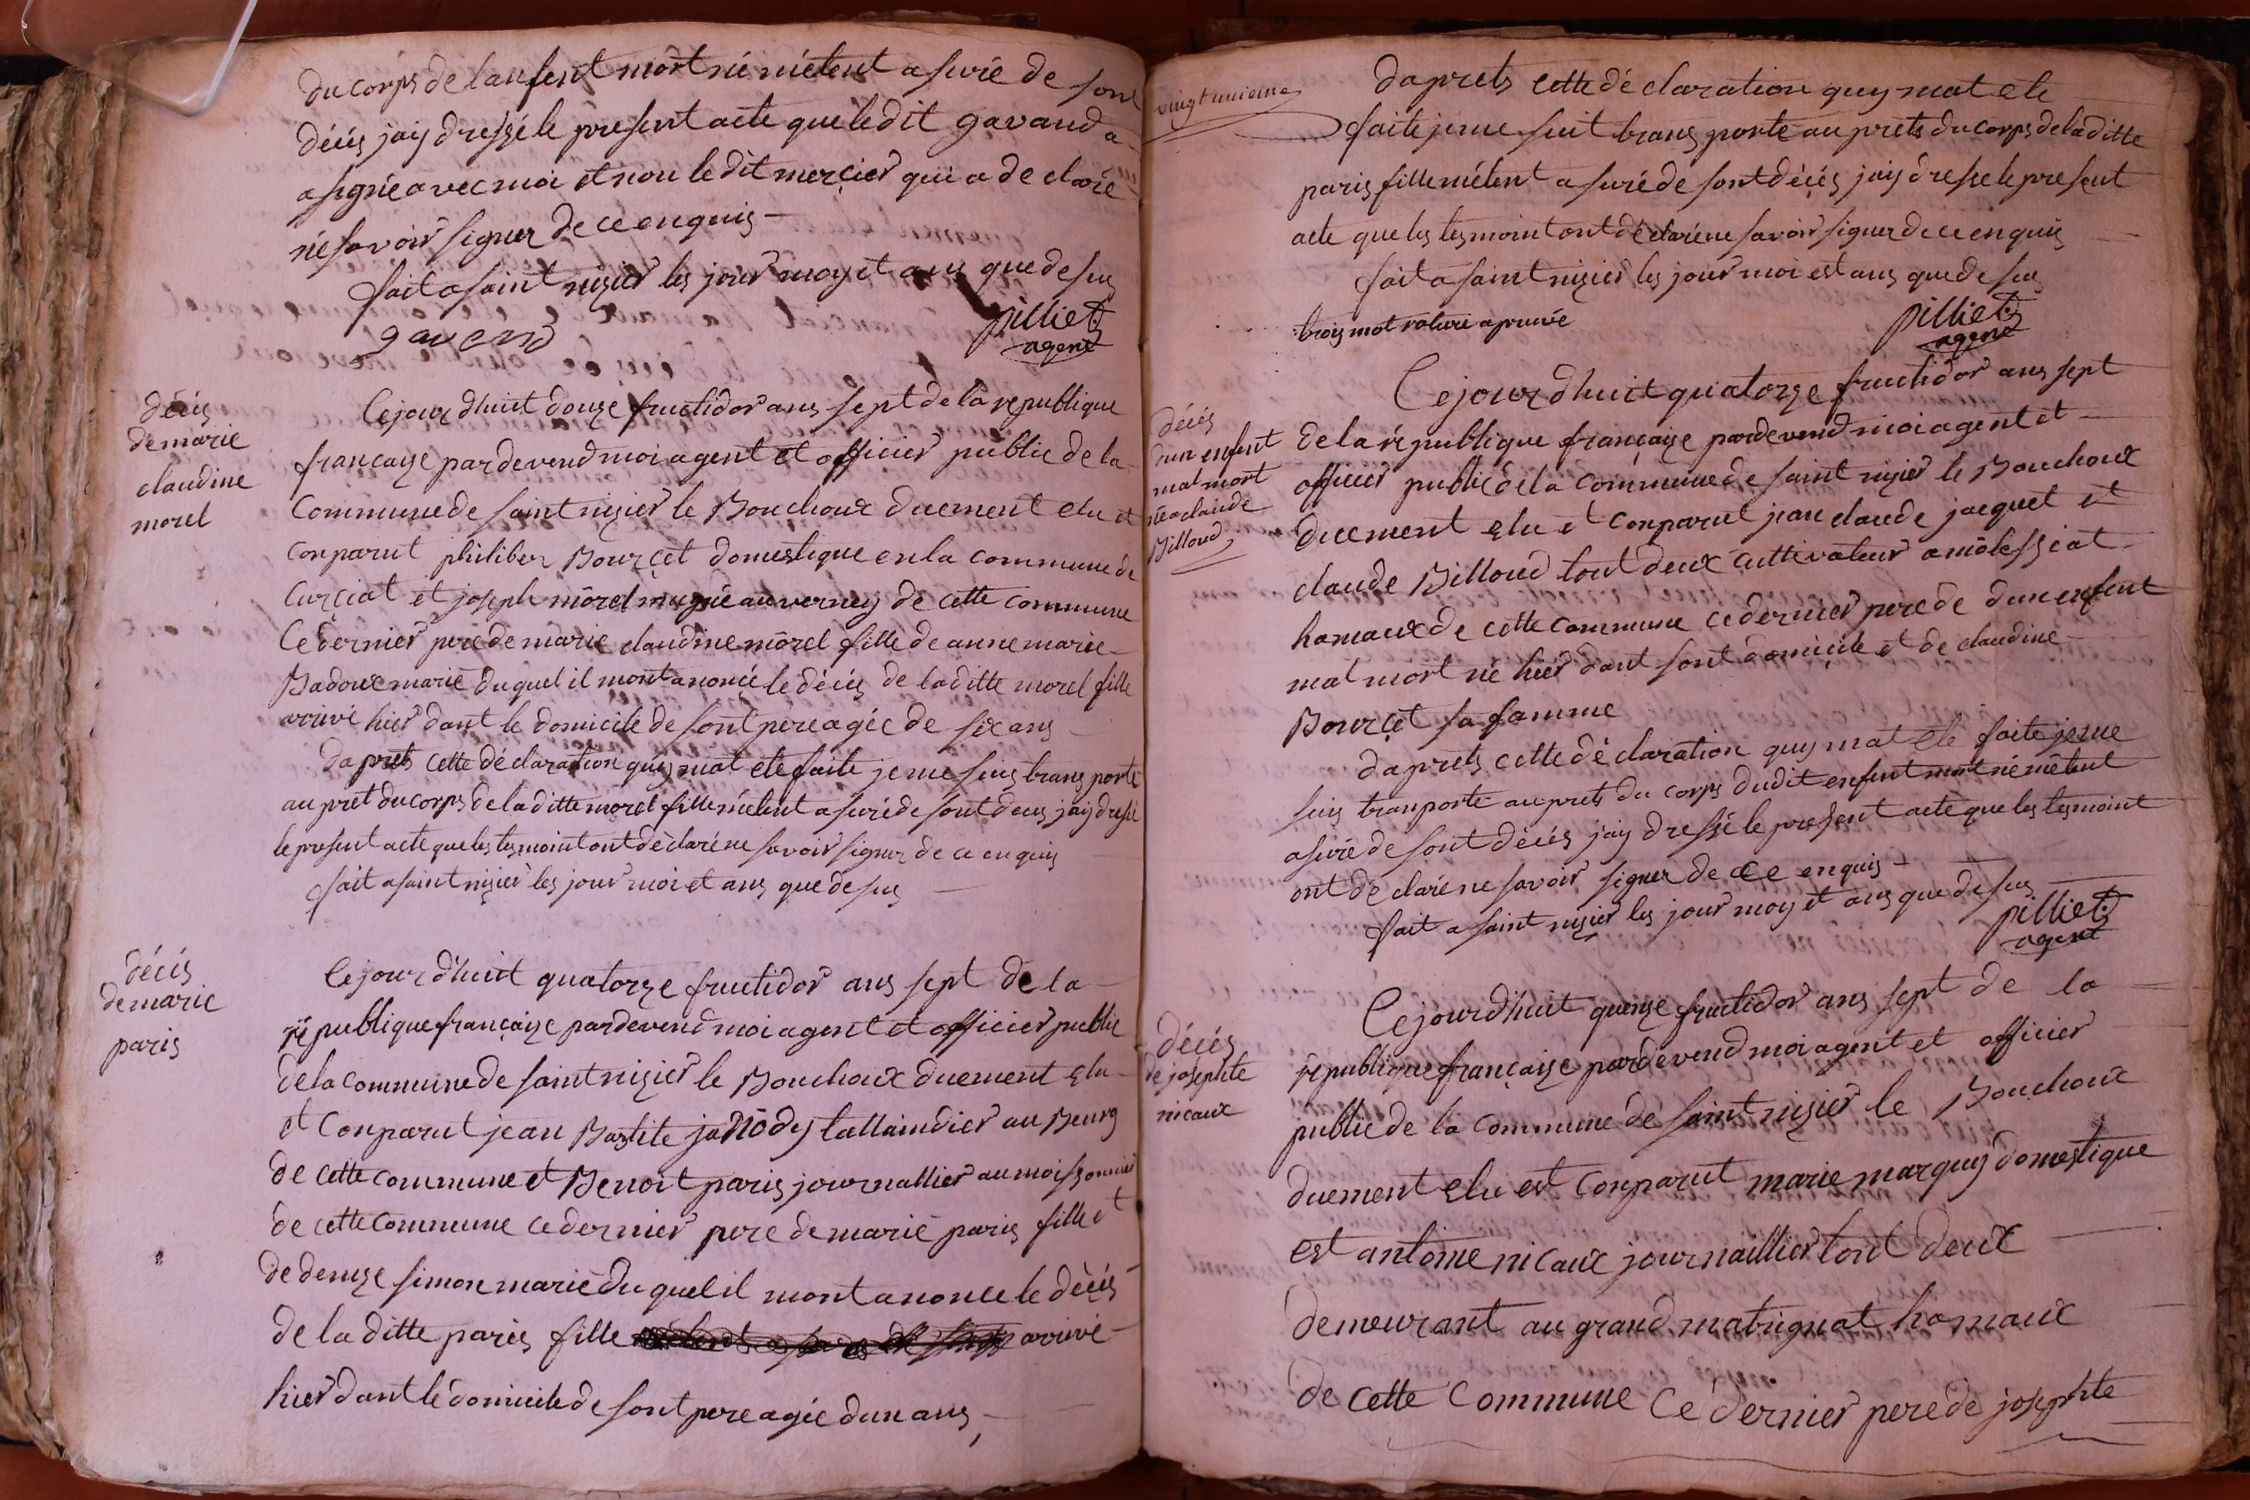 du corps de lanfent mort né métent asuré de sont
décés jay dressé le present acte que ledit gavand a
asignée avec moi et non le dit mercier qui a de claré
né savoir signer de ce enquis
fait a saint nizier les jour moy et ans que desus
gavend
pilliet
agent
décés
de marie
claudine
morel
Cejourdhuit douze fructidor ans sept de la republique
françaize pardevend moi agent et officier public de la
Commune de saint nizier le Bouchoux duement elu et
Conparut philiber Bourçet domestique en la commune de
Curçiat et joseph môrel au verney de cette commune
Ce dernier pere de marie claudine môrel fille de anne marie
Badoux marié duquel il mont anoncé le décés de laditte morel fille
arivé hier dant le domicile de sont pere agée de six ans
daprets cette déclaration quy mat ete faite je me suis trans porté
au pret du corps de laditte môrel fille métent asuré de sont deces jay dressé
le present acte que les tesmoint ont déclaré ne savoir signer de ce enquis
fait a saint nizier les jour moi et ans que desus
décés
de marie
paris
Cejourdhuit quatorze fructidor ans sept de la
république françaize pardevend moi agent et officier public
de la commune de saint nizier le Bouchoux duement elu
et Conparut jean Bastite janôdy tallaindier au Bourg
de cette commune et Benoit paris journallier au moissonnier
de cette commune ce dernier pere de marie paris fille et
de denize simon marié du quel il mont anonce le décés
de la ditte paris fille arivé
hier dant le domicile de sont pere agée dun ans
vingt unieme
daprets cette dé claration quy mat ete
faite je me suit trans porté au prets du corps de laditte
paris fille métent asuré de sont décés jay dresse le present
acte que les tesmoint ont déclaré ne savoir signer de ce enquis
fait a saint nizier les jour moi est ans que desus
trois mot raturé apruvé
pilliet
agent
décés
dun enfent
mal mort
né a claude
Billoud
Cejourdhuit quatorze fructidor ans sept
de la république françaize pardevend moi agent et
officier public de la commune de saint nizier le Bouchoux
duement elu et conparut jean claude jacquet et
claude Billoud tout deux cultivateur a môlessiat
hamaux de cette commune ce dernier pere de dun enfent
mal mort né hier dant sont domicile et de claudine
Bourçet sa famme
daprets cette dé claration quy mat ete faite je me
suis tranporté au prets du corps dudit enfent mort né métent
asuré de sont décés jay dressé le present acte que les tesmoint
ont dé claré ne savoir signer de ce enquis
fait a saint nizier les jour moy et ans que desus
pilliet
agent
décés
de josephte
nicaux
Cejourdhuit quenze fructidor ans sept de la
république françaize pardevend moi agent et officier
public de la commune de saint nizier le Bouchoux
duement elu est conparut marie marquy domestique
est antoine nicaux journaillier tout deux
demeurant au grand matrignat hamaux
de cette commune ce dernier pere de josephte